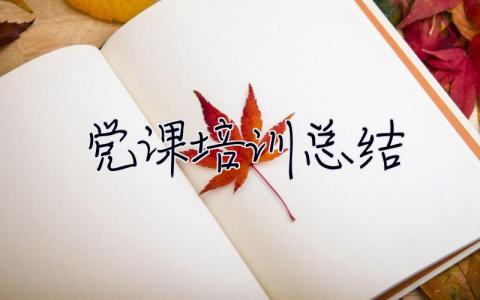 党课培训总结